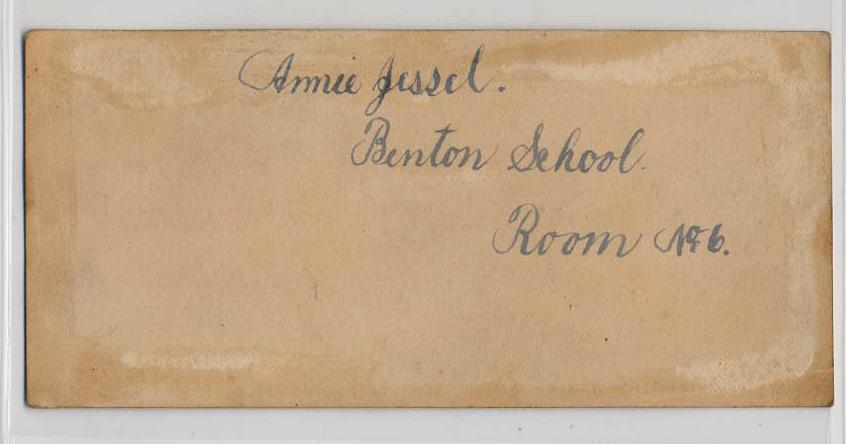 Annie Jessel.
Benton School.
Room No 6.